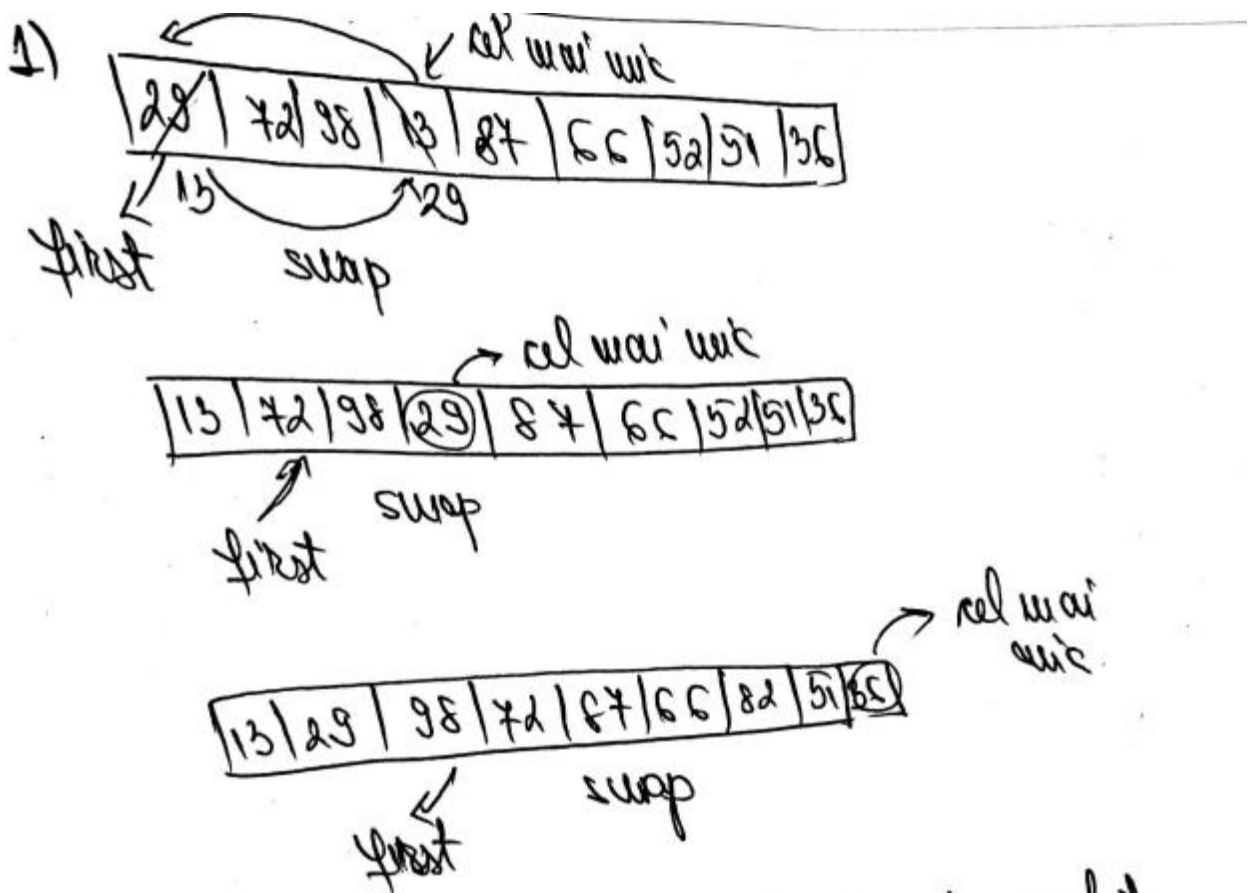 1)
cel mai mic
29 72 98 13 87 66 52 51 36
13 29
first swap
cel mai mic
13 72 98 29 87 66 52 51 36
swap
first
cel mai
mic
13 29 98 72 87 66 82 51 36
swap
first